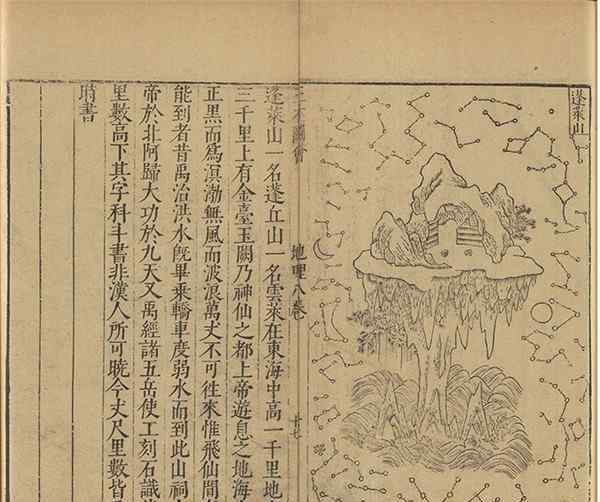 蓬萊山
三才圖會 地理八卷 十七
蓬萊山一名蓬丘山一名雲萊在東海中高一千里地
三千里上有金臺玉闕乃神仙之都上帝遊息之地海
正黑而爲溟渤無風而波浪萬丈不可徃來惟飛仙間
能到者昔禹治洪水旣畢乘轎車度弱水而到此山祠
帝於北阿歸大功於九天又禹經諸五岳使工刻石識
里數高下其字科斗書非漢人所可曉今丈尺里數皆
書